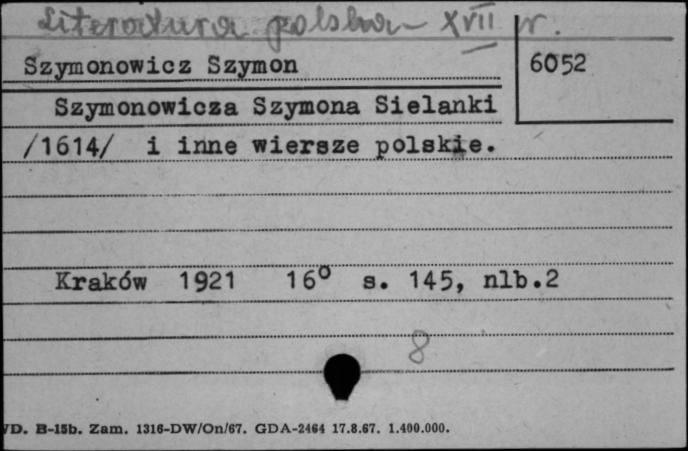 Literatura polska XVII w.
Szymonowicz Szymon
6052
Szymonowicza Szymona Sielanki
/1614/ i inne wiersze polskie.
Kraków 1921 16° s. 145, nlb.2
8
VD. B-15b. Zam. 1316-DW/On/67. GDA-2464 17.8.67. 1.400.000.